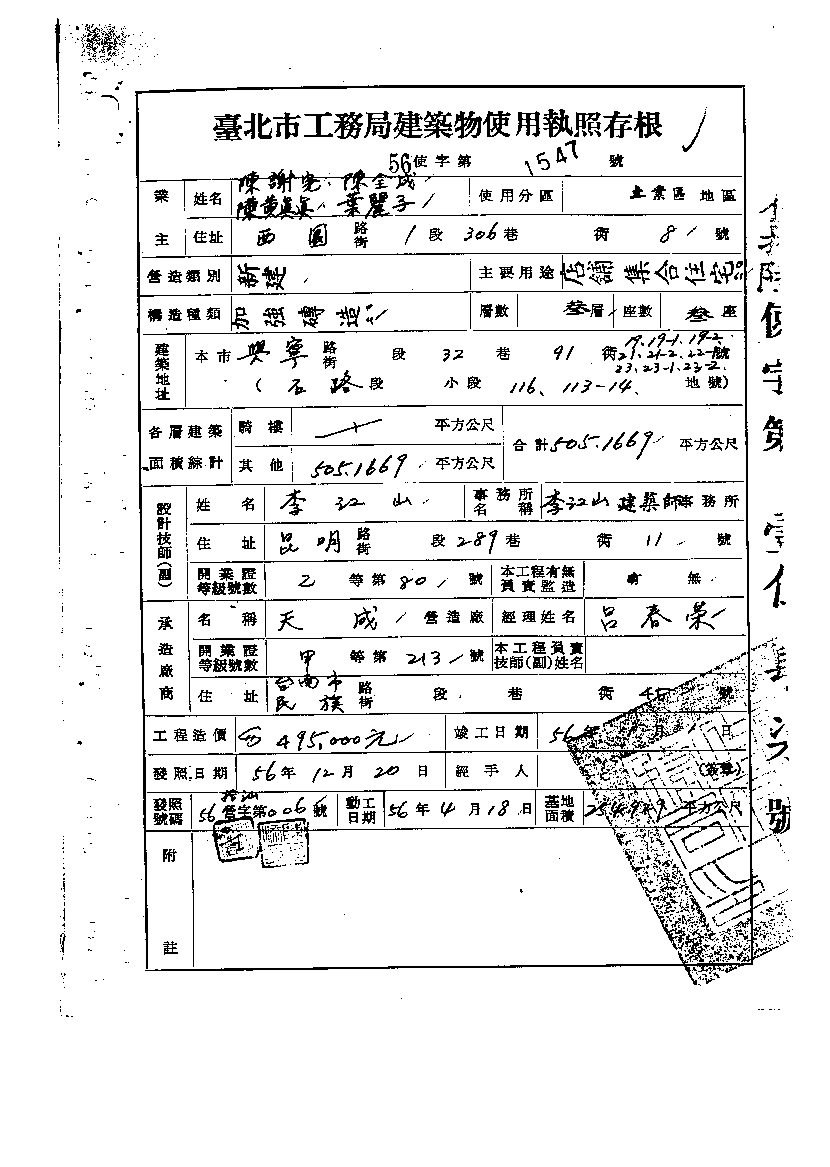 臺北市工務局建築物使用執照存根
56使字第 1547 號
業主 姓名 陳謝 陳全成 使用分區 業區 地區
陳黃 葉麗子
住址 西園 路街 1 段 306 巷 衖 8 號
營造類別 新建 主要用途 店鋪集合住宅
構造種類 加強磚造 層數 叁層 座數 叁座
19.19-1.19-2.
建築地址 本市 興寧 路街 段 32 巷 91 衖 21.21-2.22- 號
23.23-1.23-2.
( 石路 段 小段 116、113-14、 地號)
各層建築面積綜計 騎樓 平方公尺 合計 505.1669 平方公尺
其他 505.1669 平方公尺
設計技師(副) 姓名 李江山 事務所名稱 李江山建築師事務所
住址 昆明 路街 段 289 巷 衖 11 號
開業證等級號數 乙 等第 80 號 本工程有無負責監造 有 無
承造廠商 名稱 天成 營造廠 經理姓名 呂春榮
開業證等級號數 甲 等第 213 號 本工程負責技師(副)姓名
住址 台南市民族 路街 段 巷 衖 號
工程造價 495,000元 竣工日期 56年 月 日
發照日期 56年12月20日 經手人 (簽章)
發照號碼 56 營字第006號 動工日期 56年4月18日 基地面積 平方公尺
附註